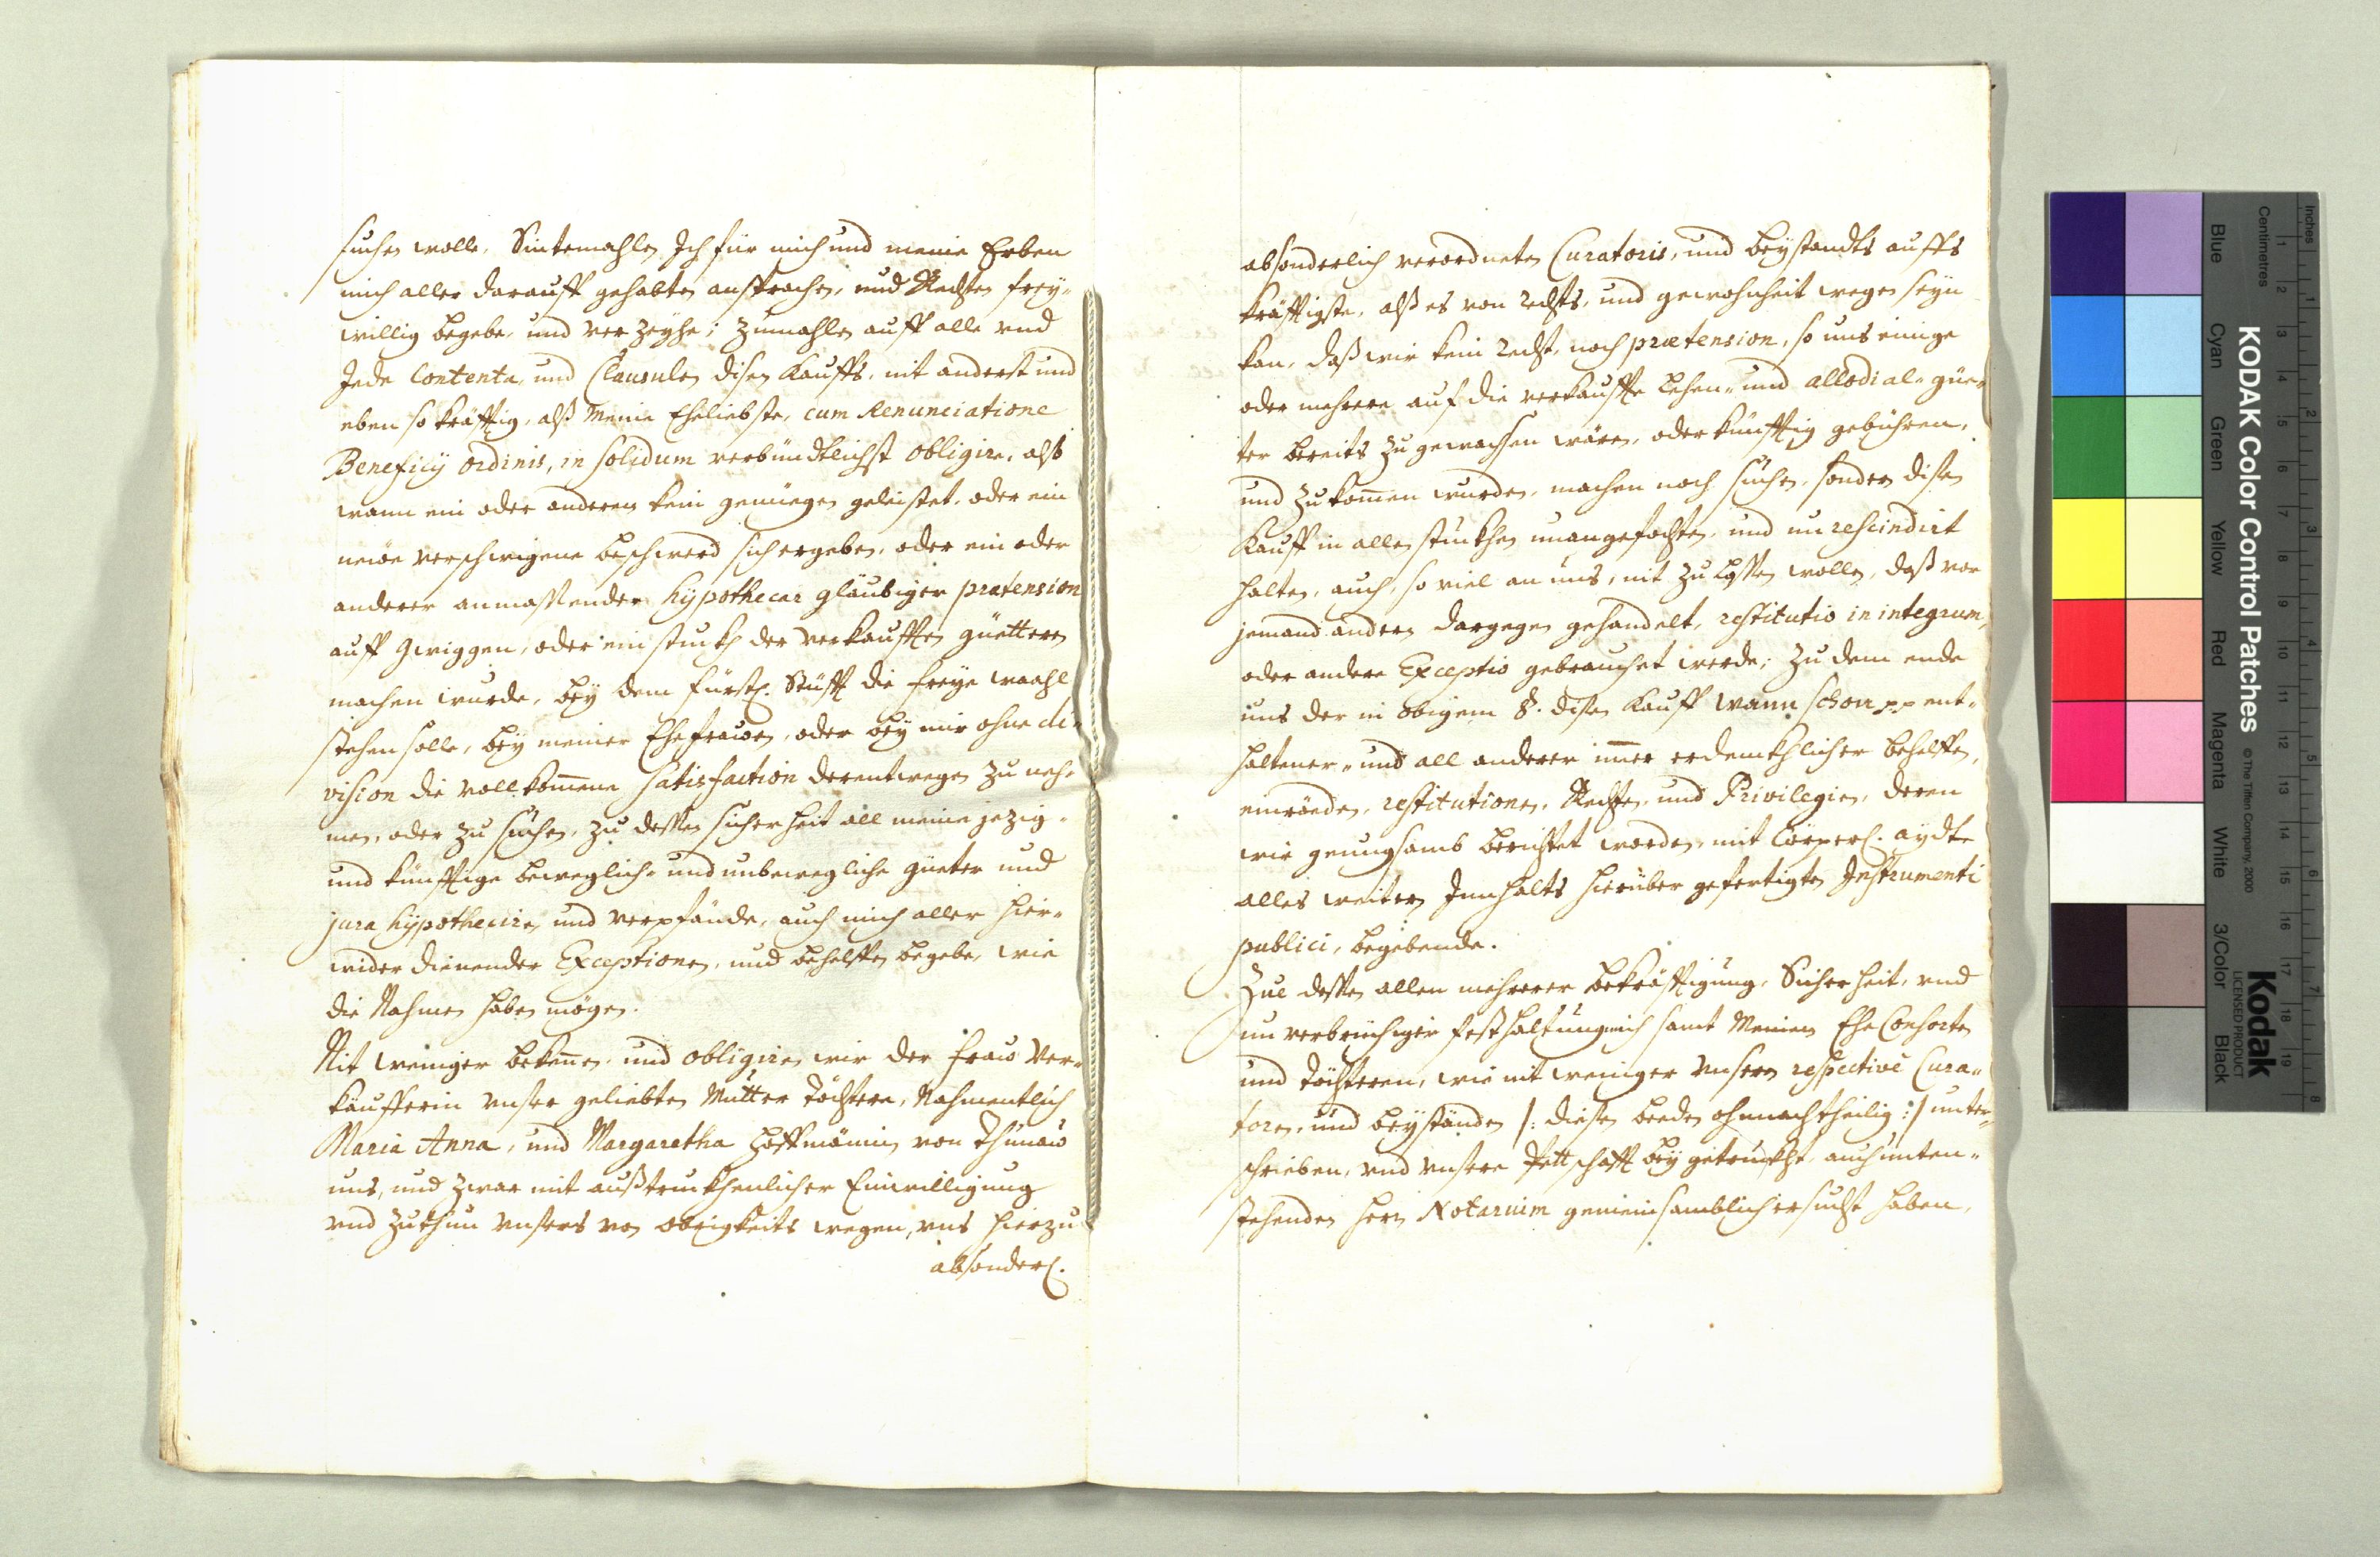 suchen wolle, Sintemahlen Ich für mich und meine Erben
mich aller darauff gehabten ansprachen, und Rechten frey-
willig begebe, und verzeyhe; zumahlen auff alle vnd
Jede Contenta, und Clausulen disen Kauffs, nit anderst und
eben so kräfftig, alß meine Eheliebste, cum Renunciatione
Beneficij ordinis, in solidum verbündtlichst obligire, alß
wann ein oder anderen kein genüegen geleistet, oder ein
newe verschwigene beschwerd sich ergeben, oder ein oder
anderer anmassender hypothecar gläubiger prætension
auff Gwiggen, oder ein stuckh der verkaufften güettern
machen wurde, bey dem fürstl. Stüfft die freye waahl
stehen solle, bey meiner Ehefrawen, oder bey mir ohne di-
vision die vollkom̄ene satisfaction derentwegen zu neh-
men, oder zu suchen, zu dessen sicherheit all meine jezig-
und künfftige beweglich- und unbewegliche güeter und
jura hypothecire, und verpfände, auch mich aller hier-
wider dienender Exceptionen, und behelffen begebe, wie
die Nahmen haben mögen.
Nit weniger beken̄en, und obligiren wir der fraw Ver-
käufferin vnser geliebten Mutter Töchtere, Nahmentlich
Maria Anna, und Margaretha Hoffmännin von Thunaw
uns, und zwar mit außtruckhenlicher Einwilligung
vnd zuthun vnsers von obrigkeits wegen, vns hierzu
absonderl.
absonderlich verordneten Curatoris, und beystandts auffs
kräfftigste, alß es von rechts, und gewohnheit wegen seyn
kan, daß wir kein recht, noch prætension, so uns einige
oder mehrere auf die verkauffte Lehen- und allodial- güe-
ter bereits zugewachsen wären, oder künfftig gebühren,
und zukom̄en wurden, machen noch suchen, sonder disen
Kauff in allen stuckhen unangefochten, und un rescindirt
halten, auch, so viel an uns, nit zu lassen wollen, daß von
jemand andern dargegen gehandelt, restitutio in integrum,
oder andere Exceptio gebrauchet werde; zu dem ende
uns der in obigem §. disen Kauff wann schon pp ent-
haltener- und all anderer im̄er erdenckhlicher behelffen,
einröeden, restitutionen, Rechten, und Privilegien, deren
wir genugsamb berichtet worden, mit Cörperl. aydte
alles weitern Innhalts hierüber gefertigten Instrumenti
publici, begebende.
Zue dessen allen mehrerer bekräfftigung, Sicherheit, vnd
un verbrüchiger festhaltung mich samt Meinen Ehe Consorten
und Töchteren, wie nit weniger vnsern respective Cura-
toren, und beyständen /: diesen beeden ohnnachtheilig :/ unter-
schrieben, vnd vnsere Pettschafft beygetruckht, auch unten-
stehenden Hern Notarium gemeinsamblich ersucht haben,
KODAK Color Control Patches
© The Tiffen Company, 2000
Kodak
LICENSED PRODUCT
Inches
Centimetres
Blue
Cyan
Green
Yellow
Red
Magenta
White
3/Color
Black